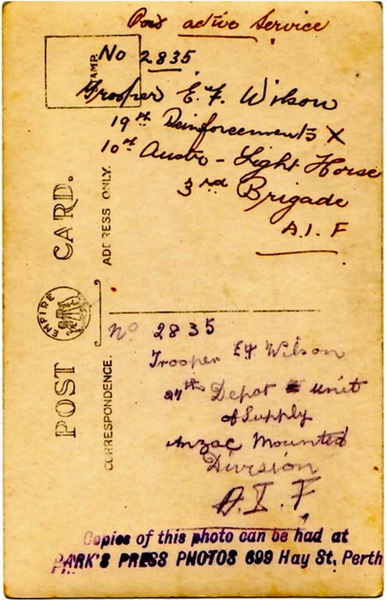 On active Service
No 2835
Trooper E. F. Wilson
19th Reinforcements X
10th Austr - Light Horse
3rd Brigade
A.I.F
STAMP.
POST CARD.
ADDRESS ONLY.
EMPIRE
CORRESPONDENCE.
No 2835
Trooper EF Wilson
27th Depot unit
of Supply
Anzac Mounted
Division
A.I.F
Copies of this photo can be had at
PARK'S PRESS PHOTOS 699 Hay St, Perth